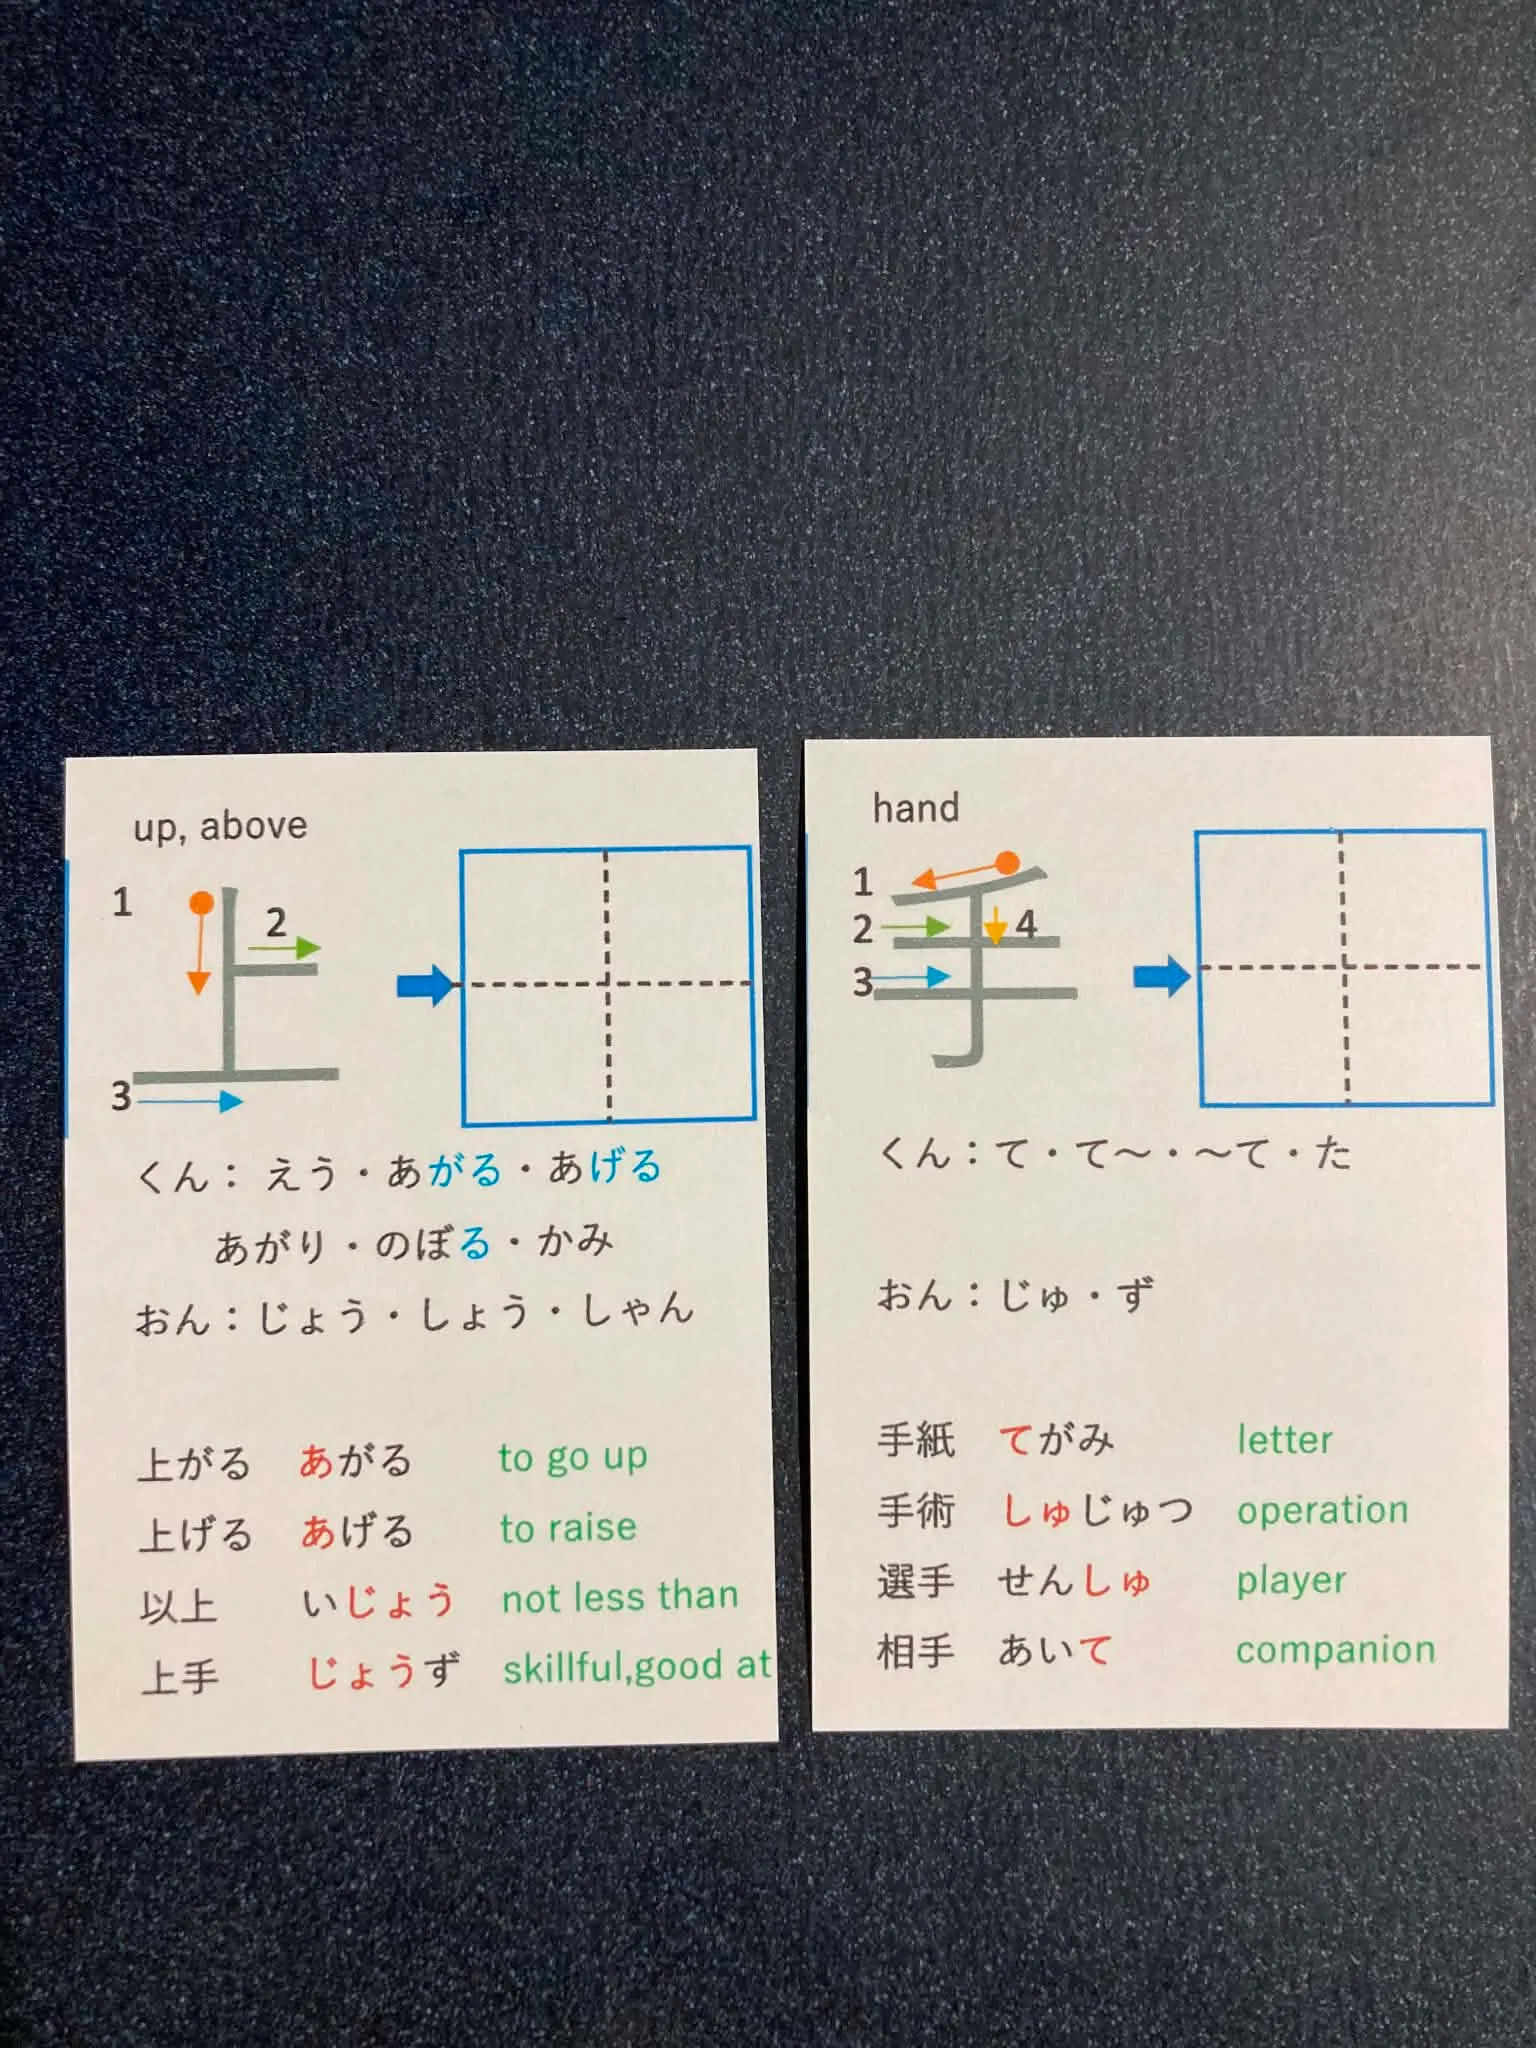 up, above
1
2
3
くん： えう・あがる・あげる
あがり・のぼる・かみ
おん：じょう・しょう・しゃん
上がる あがる to go up
上げる あげる to raise
以上 いじょう not less than
上手 じょうず skillful,good at
hand
1
2 4
3
くん：て・て～・～て・た
おん：じゅ・ず
手紙 てがみ letter
手術 しゅじゅつ operation
選手 せんしゅ player
相手 あいて companion